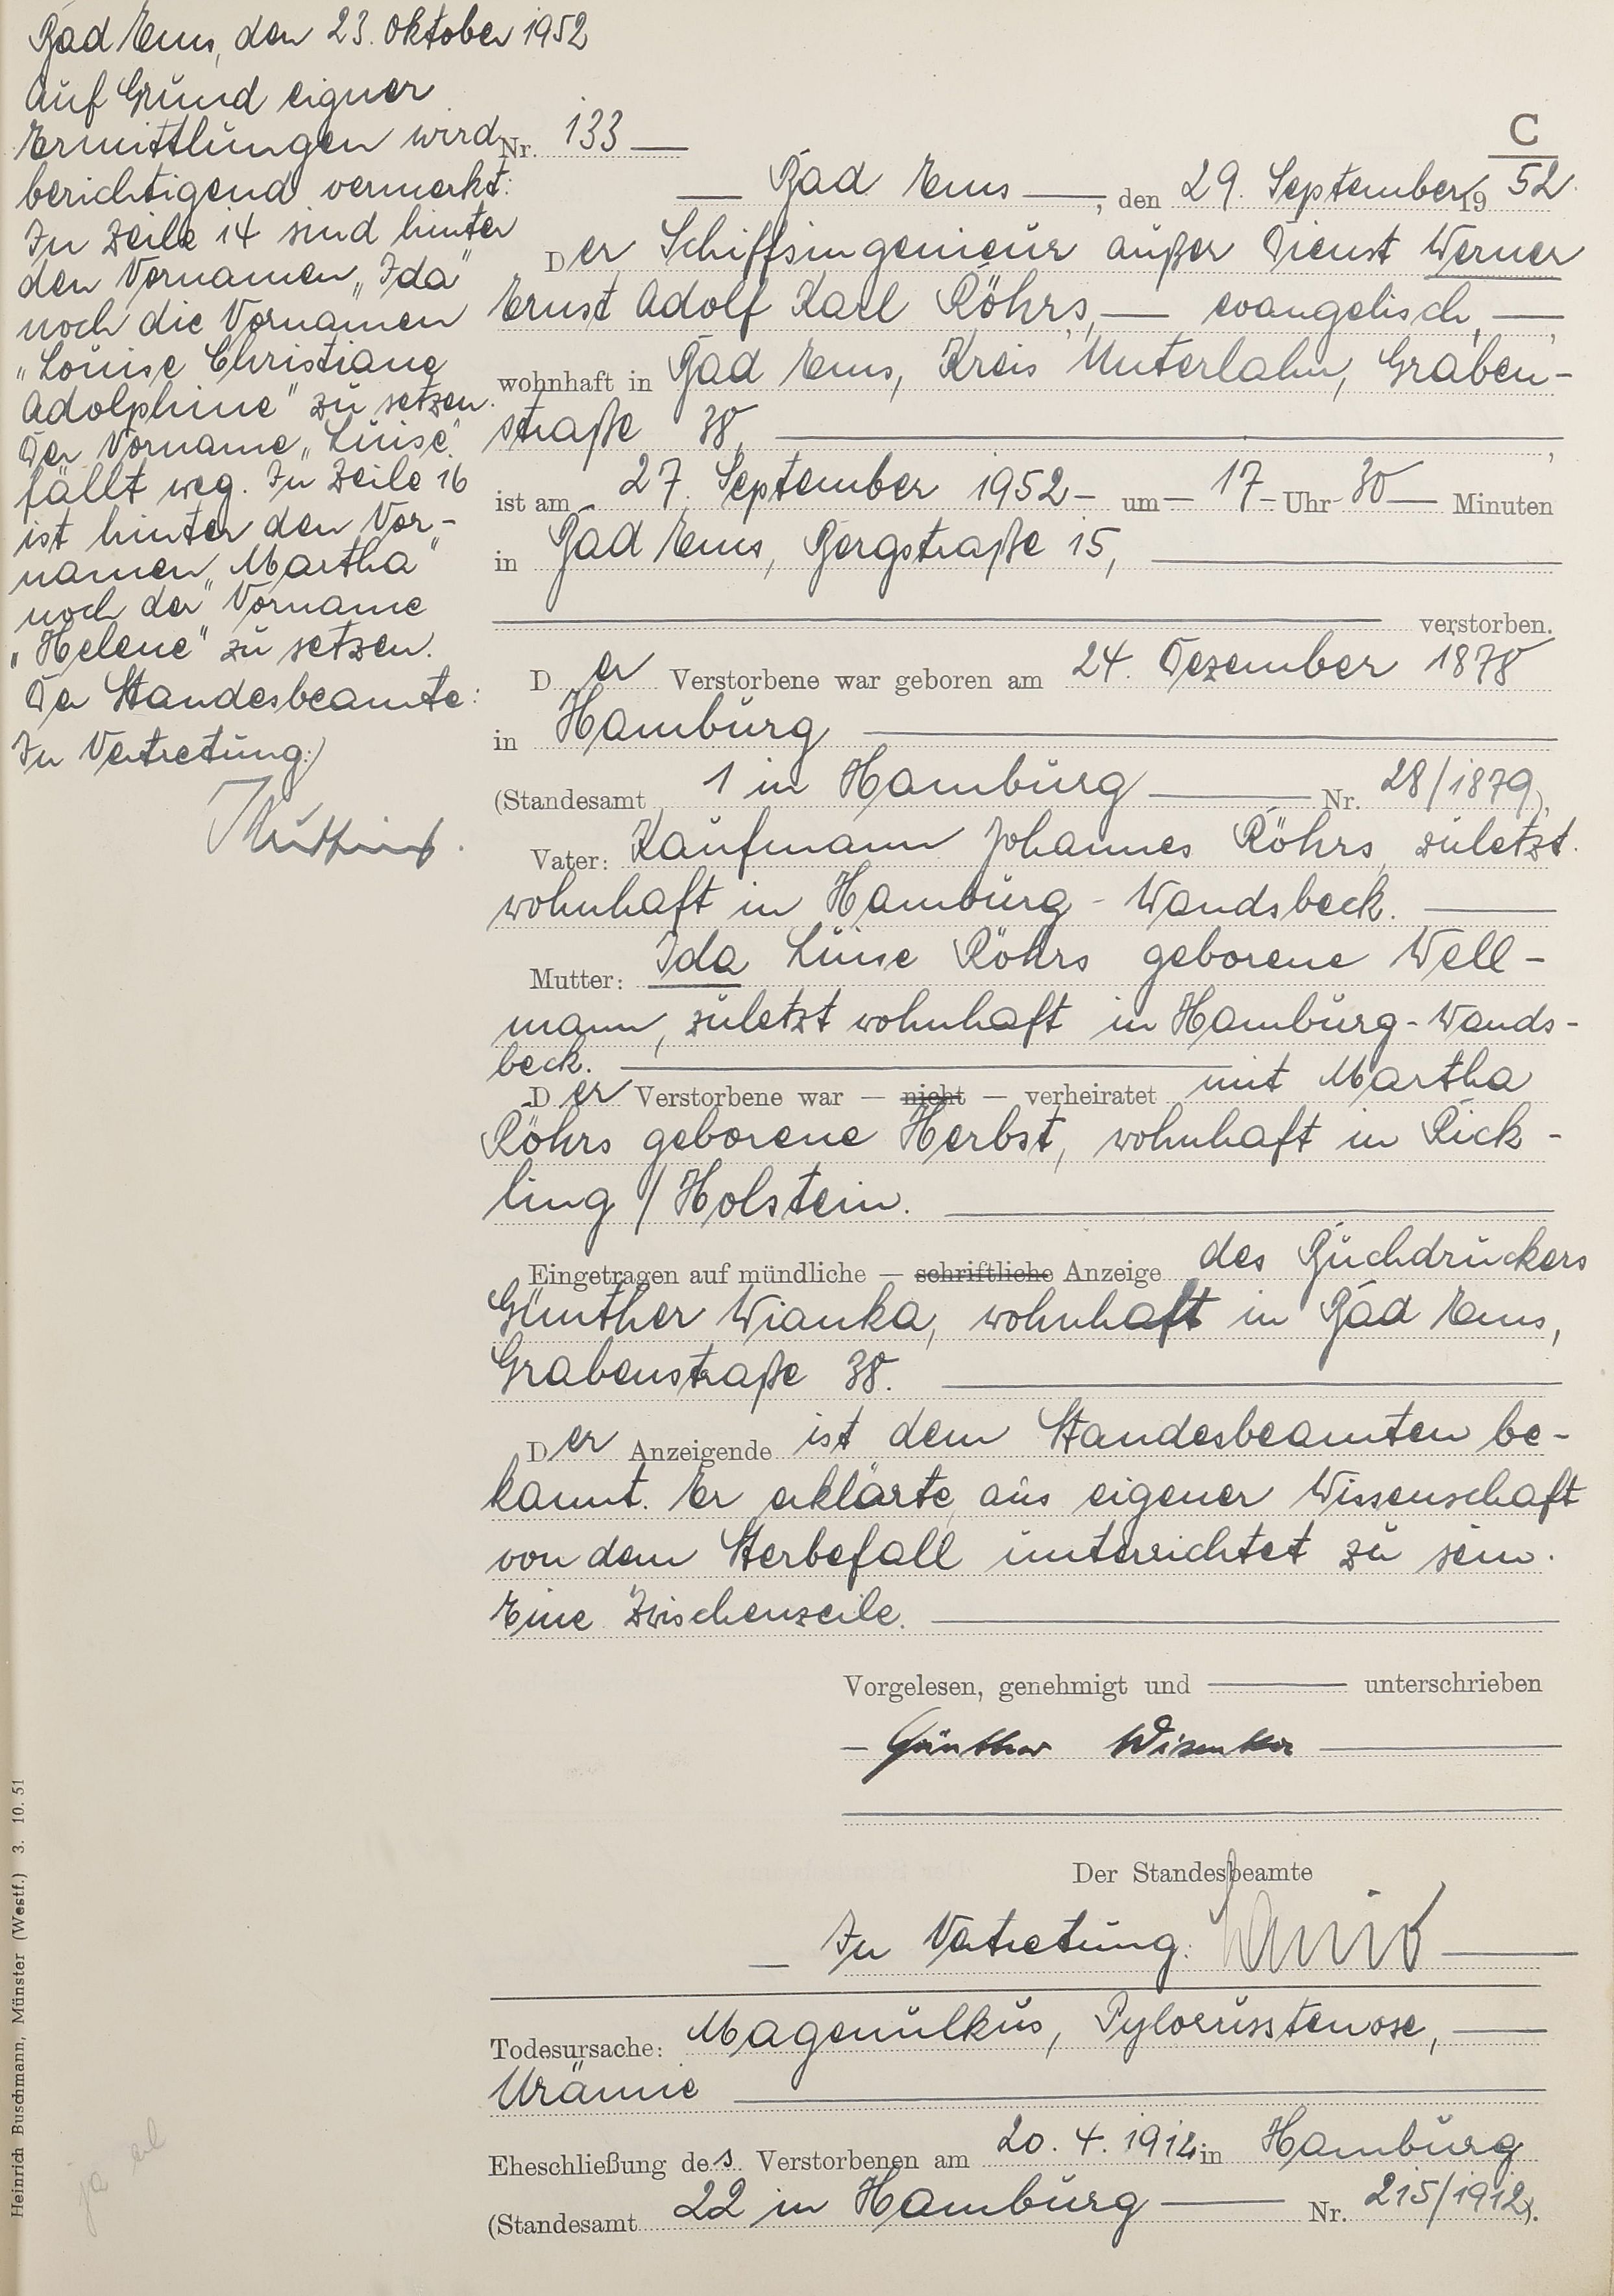 Bad Ems, den 23. Oktober 1952
Auf Grund eigner
Ermittlungen wird
berichtigend vermerkt:
In Zeile 14 sind hinter
den Vornamen „Ida"
noch die Vornamen
„Louise Christiane
Adolphine" zu setzen.
Der Vorname „Luise"
fällt weg. In Zeile 16
ist hinter den Vor-
namen „Martha"
noch der Vorname
„Helene" zu setzen.
Der Standesbeamte:
In Vertretung:
C
Nr. 133
Bad Ems, den 29. September 1952.
Der Schiffsingenieur außer Dienst Werner
Ernst Adolf Karl Röhrs, — evangelisch, —,
wohnhaft in Bad Ems, Kreis Unterlahn, Graben-
straße 38,
ist am 27. September 1952 – um – 17 – Uhr 30 — Minuten
in Bad Ems, Bergstraße 15,
verstorben.
Der Verstorbene war geboren am 24. Dezember 1878
in Hamburg
(Standesamt 1 in Hamburg — Nr. 28/1879),
Vater: Kaufmann Johannes Röhrs, zuletzt
wohnhaft in Hamburg - Wandsbeck.
Mutter: Ida Luise Röhrs geborene Well-
mann, zuletzt wohnhaft in Hamburg-Wands-
beck.
Der Verstorbene war — nicht — verheiratet mit Martha
Röhrs geborene Herbst, wohnhaft in Rick-
ling / Holstein.
Eingetragen auf mündliche — schriftliche Anzeige des Buchdruckers
Günther Wianka, wohnhaft in Bad Ems,
Grabenstraße 38.
Der Anzeigende ist dem Standesbeamten be-
kannt. Er erklärte, aus eigener Wissenschaft
von dem Sterbefall unterrichtet zu sein.
Eine Zwischenzeile.
Vorgelesen, genehmigt und — unterschrieben
Günther Wianka
Der Standesbeamte
In Vertretung:
Todesursache: Magenulkus, Pylorusstenose,
Urämie
Eheschließung des Verstorbenen am 20. 4. 1912 in Hamburg
(Standesamt 22 in Hamburg — Nr. 215/1912).
Heinrich Buschmann, Münster (Westf.) 3. 10. 51